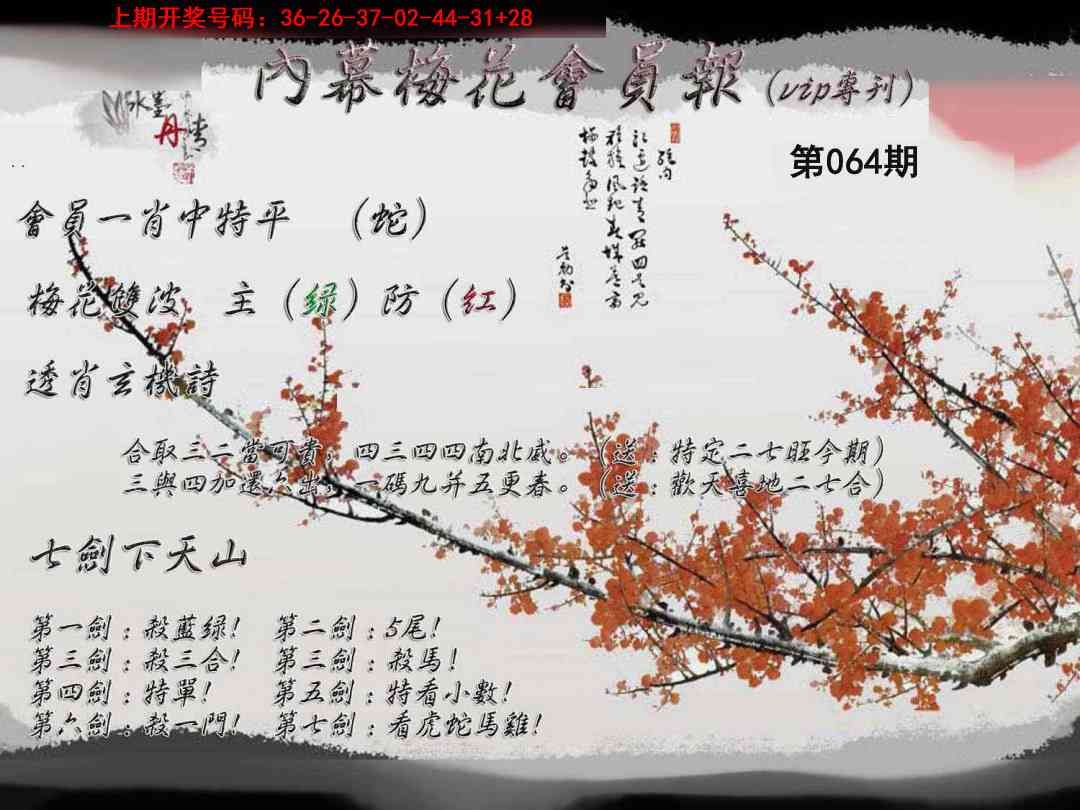 上期开奖号码：36-26-37-02-44-31+28
內幕梅花會員報（vip專刊）
水墨
丹情
第064期
會員一肖中特平 （蛇）
梅花雙波 主（绿）防（红）
透肖玄機詩
合取三二當可貴，四三四四南北威。（送：特定二七旺今期）
三與四加還六出，一碼九并五更春。（送：歡天喜地二七合）
七劍下天山
第一劍：殺藍绿！ 第二劍：5尾！
第三劍：殺三合！ 第三劍：殺馬！
第四劍：特單！ 第五劍：特看小數！
第六劍：殺一門！ 第七劍：看虎蛇馬雞！